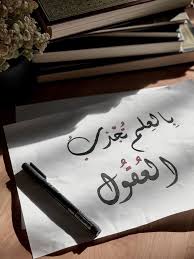 بالعلم تُجذبُ
العُقُول